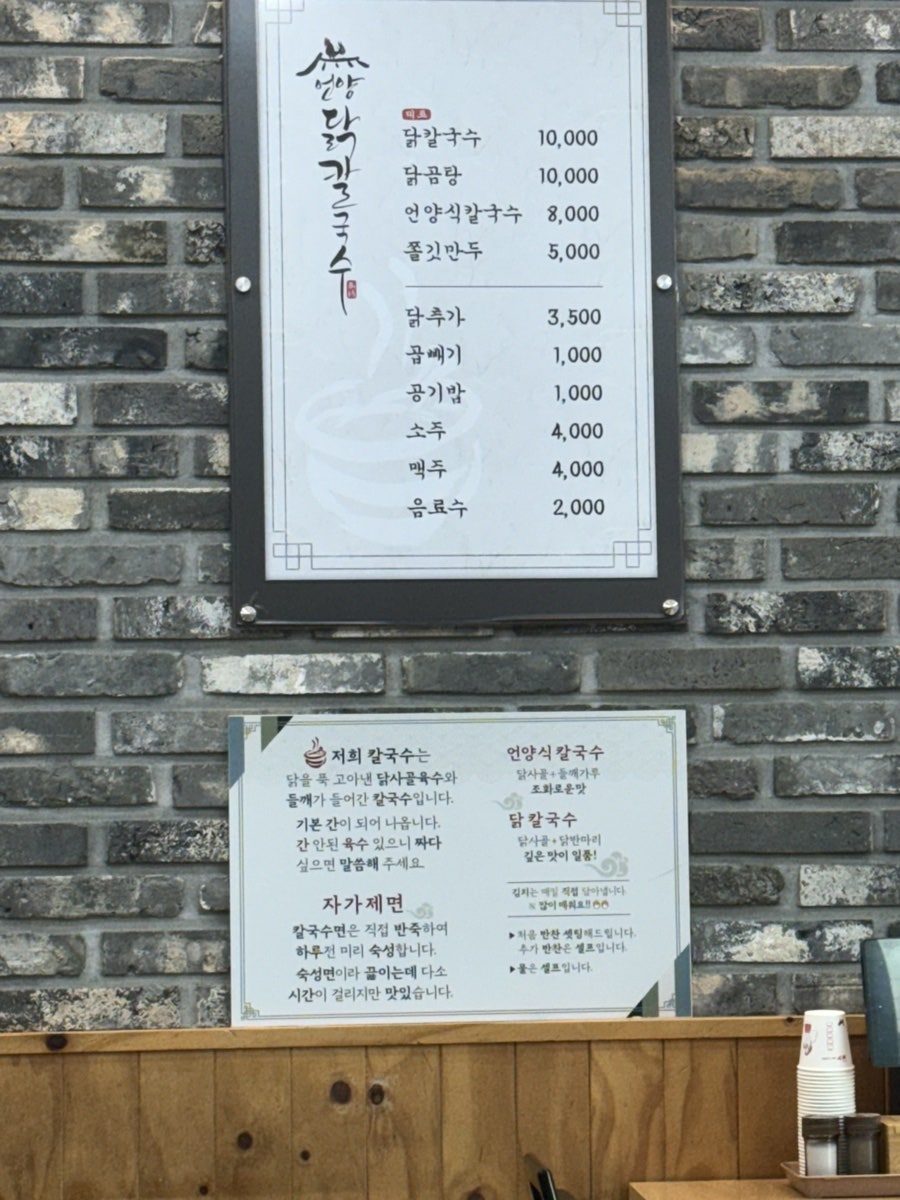 언양
닭칼국수
대표
닭칼국수 10,000
닭곰탕 10,000
언양식칼국수 8,000
쫄깃만두 5,000
닭추가 3,500
곱빼기 1,000
공기밥 1,000
소주 4,000
맥주 4,000
음료수 2,000
저희 칼국수는
닭을 푹 고아낸 닭사골육수와
들깨가 들어간 칼국수입니다.
기본 간이 되어 나옵니다.
간 안된 육수 있으니 짜다
싶으면 말씀해 주세요.
자가제면
칼국수면은 직접 반죽하여
하루전 미리 숙성합니다.
숙성면이라 끓이는데 다소
시간이 걸리지만 맛있습니다.
언양식칼국수
닭사골+들깨가루
조화로운맛
닭칼국수
닭사골+닭반마리
깊은 맛이 일품!
김치는 매일 직접 담아냅니다.
※ 많이 매워요!!
▶처음 반찬 셋팅해드립니다.
추가 반찬은 셀프입니다.
▶물은 셀프입니다.